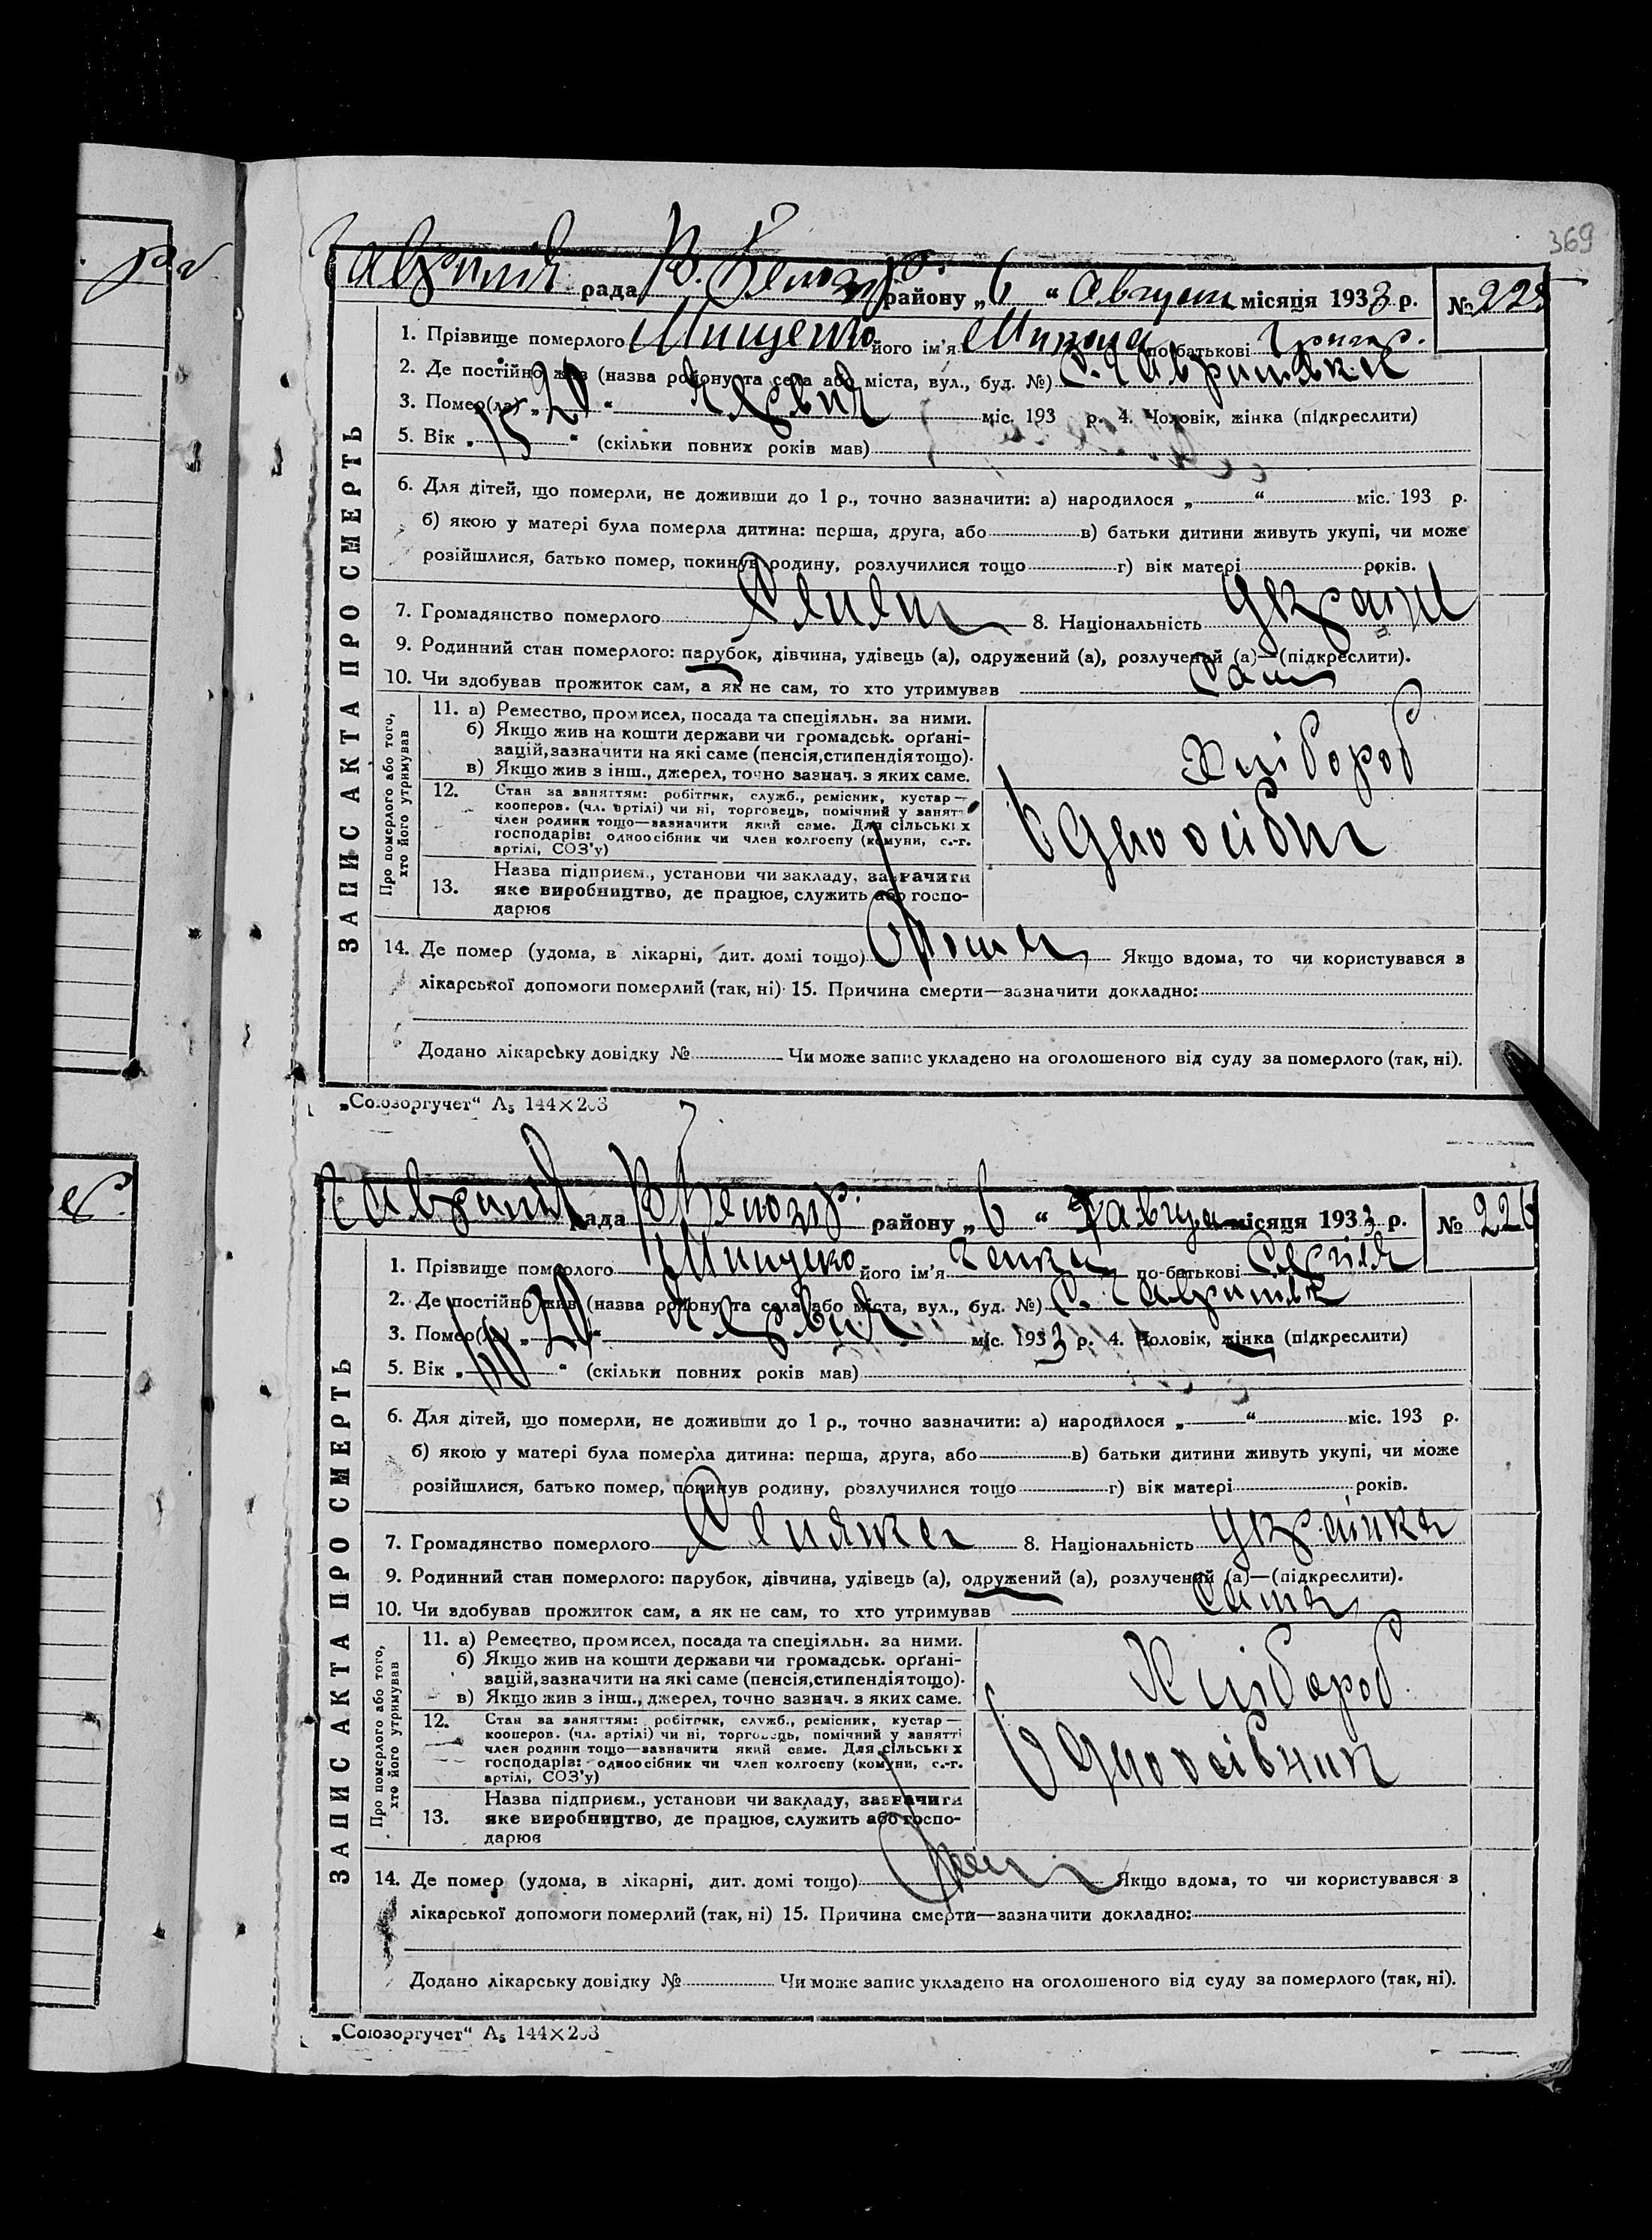 369
рада В. районy „6“ Август місяця 1933 р. № 225
1. Прізвище померлого Мищенко його ім'я Микола по-батькові Григор.
2. Де постійно жив (назва району та села або міста, вул., буд. №) с. Гавришівка
3. Помер(ла) „20“ Червня міс. 193 р. 4. Чоловік, жінка (підкреслити)
5. Вік „15“ (скільки повних років мав)
6. Для дітей, що померли, не доживши до 1 р., точно зазначити: а) народилося „ “ міс. 193 р.
б) якою у матері була померла дитина: перша, друга, або в) батьки дитини живуть укупі, чи може
розійшлися, батько помер, покинув родину, розлучилися тощо г) вік матері років.
7. Громадянство померлого 8. Національність
9. Родинний стан померлого: парубок, дівчина, удівець (а), одружений (а), розлучений (а)—(підкреслити).
10. Чи здобував прожиток сам, а як не сам, то хто утримував Сам
ЗАПИС АКТА ПРО СМЕРТЬ
Про померлого або того,
хто його утримував
11. а) Ремество, промисел, посада та спеціяльн. за ними.
б) Якщо жив на кошти держави чи громадськ. орґані-
зацій, зазначити на які саме (пенсія, стипендія тощо).
в) Якщо жив з інш., джерел, точно зазнач. з яких саме.
Хлібороб
12. Стан за заняттям: робітник, служб., ремісник, кустар—
кооперов. (чл. артілі) чи ні, торговець, помічний у занятті
член родини тощо—зазначити який саме. Для сільських
господарів: одноосібник чи член колгоспу (комуни, с.-г.
артілі, СОЗ'у)
Одноосібн
13. Назва підприєм., установи чи закладу, зазначити
яке виробництво, де працює, служить або госпо-
дарює
14. Де помер (удома, в лікарні, дит. домі тощо) Якщо вдома, то чи користувався з
лікарської допомоги померлий (так, ні) 15. Причина смерти—зазначити докладно:
Додано лікарську довідку № Чи може запис укладено на оголошеного від суду за померлого (так, ні).
„Союзоргучет“ А5 144×203
рада районy „6“ августа місяця 1933 р. № 226
1. Прізвище померлого Мищенко його ім'я по-батькові Сергіїв
2. Де постійно жив (назва району та села або міста, вул., буд. №) с. Гавришівк
3. Помер(ла) „20“ Червня міс. 1933 р. 4. Чоловік, жінка (підкреслити)
5. Вік „60“ (скільки повних років мав)
6. Для дітей, що померли, не доживши до 1 р., точно зазначити: а) народилося „ “ міс. 193 р.
б) якою у матері була померла дитина: перша, друга, або в) батьки дитини живуть укупі, чи може
розійшлися, батько помер, покинув родину, розлучилися тощо г) вік матері років.
7. Громадянство померлого Селянка 8. Національність Українка
9. Родинний стан померлого: парубок, дівчина, удівець (а), одружений (а), розлучений (а)—(підкреслити).
10. Чи здобував прожиток сам, а як не сам, то хто утримував Сама
ЗАПИС АКТА ПРО СМЕРТЬ
Про померлого або того,
хто його утримував
11. а) Ремество, промисел, посада та спеціяльн. за ними.
б) Якщо жив на кошти держави чи громадськ. орґані-
зацій, зазначити на які саме (пенсія, стипендія тощо).
в) Якщо жив з інш., джерел, точно зазнач. з яких саме.
Хлібороб
12. Стан за заняттям: робітник, служб., ремісник, кустар—
кооперов. (чл. артілі) чи ні, торговець, помічний у занятті
член родини тощо—зазначити який саме. Для сільських
господарів: одноосібник чи член колгоспу (комуни, с.-г.
артілі, СОЗ'у)
Одноосібник
13. Назва підприєм., установи чи закладу, зазначити
яке виробництво, де працює, служить або госпо-
дарює
14. Де помер (удома, в лікарні, дит. домі тощо) Якщо вдома, то чи користувався з
лікарської допомоги померлий (так, ні) 15. Причина смерти—зазначити докладно:
Додано лікарську довідку № Чи може запис укладено на оголошеного від суду за померлого (так, ні).
„Союзоргучет“ А5 144×203